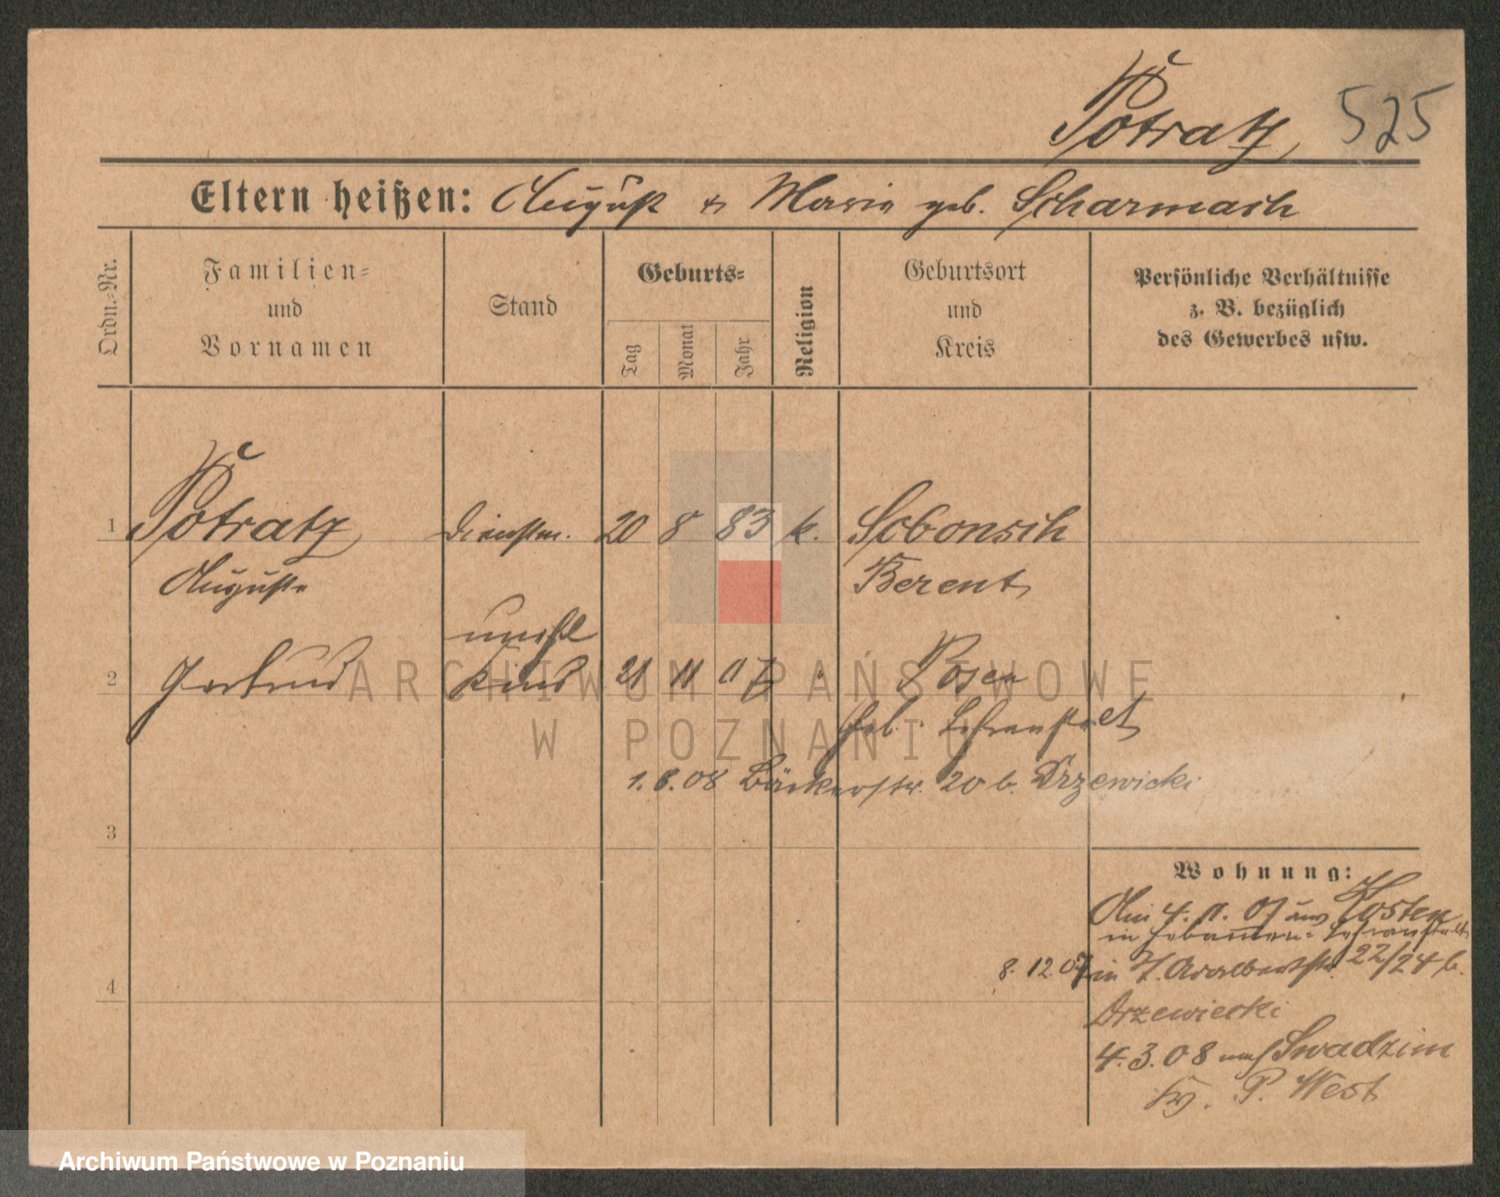 Potratz 525
Eltern heißen: August & Marie geb. Scharmach
Ordn.-Nr.
Familien-
und
Vornamen
Stand
Geburts-
Tag
Monat
Jahr
Religion
Geburtsort
und
Kreis
Persönliche Verhältnisse
z. B. bezüglich
des Gewerbes usw.
1 Potratz Dienstm. 20 8 83 k. Sobonsch
Auguste Berent
unehl
2 Gertrud Kind 21 11 07 " Posen
Heb. Lehranstalt
1.8.08 Bäckerstr. 20 b. Drzewicki
3
Wohnung:
Am 4. 11. 07 aus Kosten
in Hebammen-Lehranstalt
8. 12 07 in J. Adalbertstr. 22/24 b.
4
Drzewiecki
4. 3. 08 nach Swadzim
Kr. P. West
ARCHIWUM PAŃSTWOWE
W POZNANIU
Archiwum Państwowe w Poznaniu